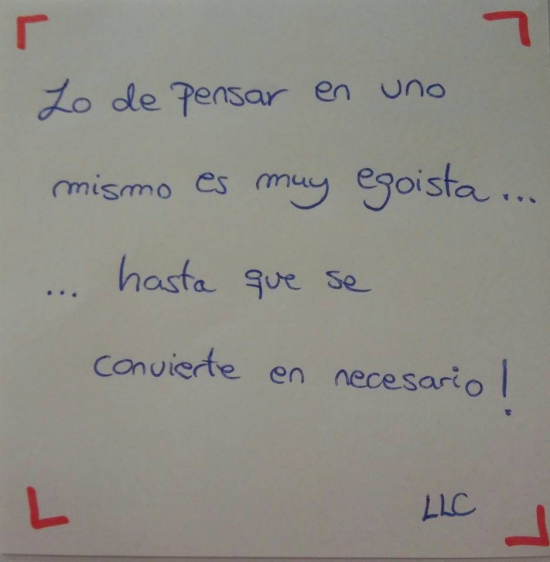 Lo de pensar en uno
mismo es muy egoista...
... hasta que se
convierte en necesario!
LLC